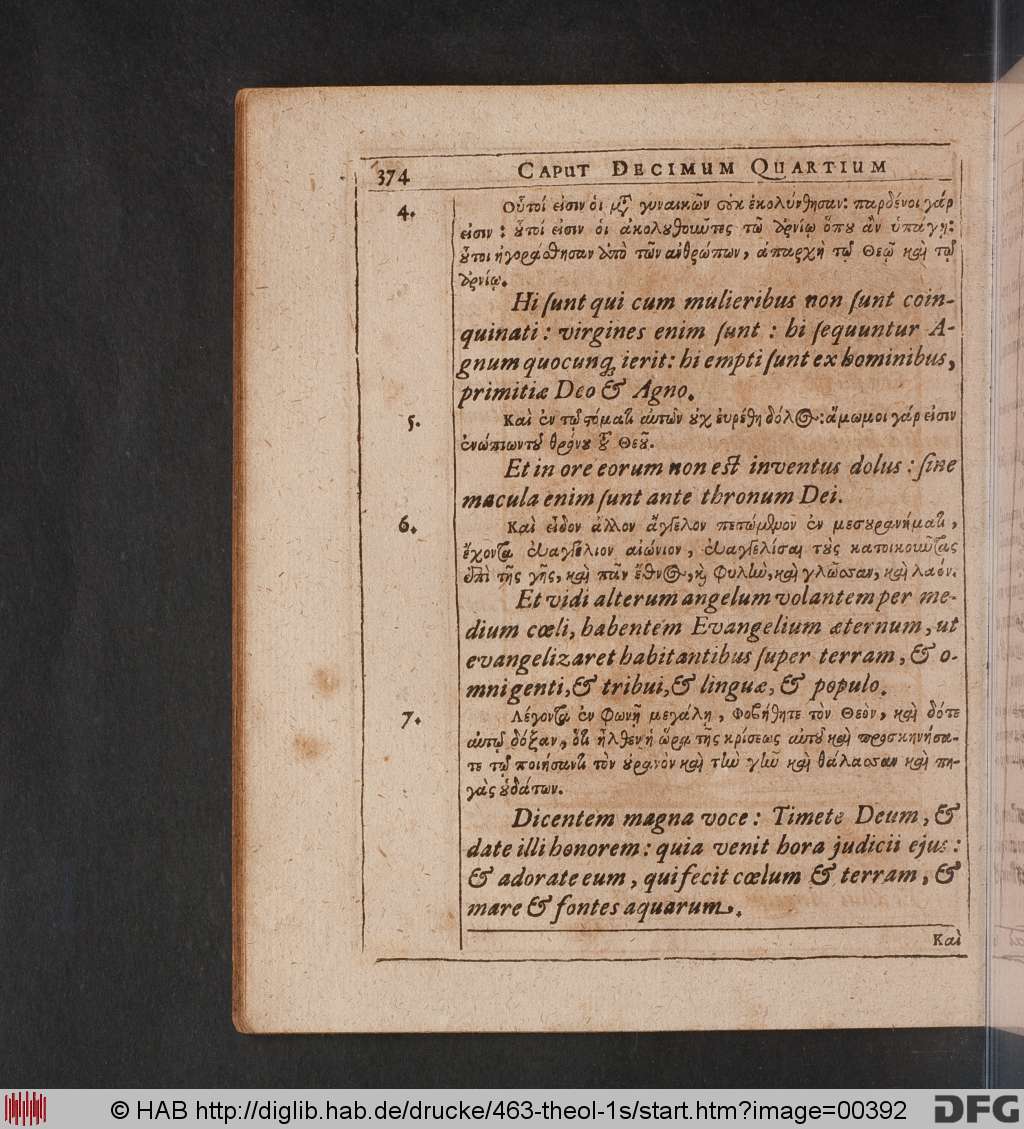 374 CAPUT DECIMUM QUARTIUM
4. Οὗτοί εἰσιν ὁι μετὰ γυναικῶν οὐκ ἐκολύνθησαν: παρθένοι γάρ
εἰσιν: οὗτοί εἰσιν ὁι ἀκολουθοῦντες τῶ ἀρνίῳ ὅπου ἂν ὑπάγῃ:
οὗτοι ἠγοράσθησαν ἀπὸ τῶν ανθρώπων, ἀπαρχὴ τῷ Θεῷ καὶ τῷ
ἀρνίῳ.
Hi ſunt qui cum mulieribus non ſunt coin-
quinati: virgines enim ſunt: hi ſequuntur A-
gnum quocunq́; ierit: hi empti ſunt ex hominibus,
primitiæ Deo & Agno.
5. Καὶ ἐν τῷ στόματι αὐτῶν οὐχ ἑυρέθη δόλος: ἄμωμοι γάρ εἰσιν
ἐνώπιον τοῦ θρόνου τοῦ Θεοῦ.
Et in ore eorum non eſt inventus dolus: ſine
macula enim ſunt ante thronum Dei.
6. Καὶ εἶδον ἄλλον ἄγγελον πετώμενον ἐν μεσουρανήματι,
ἔχοντα ἐυαγγέλιον αἰώνιον, ἐυαγγελίσαι τοὺς κατοικοῦντας
ἐπὶ τῆς γῆς, καὶ πᾶν ἔθνος, καὶ φυλὴν, καὶ γλῶσσαν, καὶ λαόν.
Et vidi alterum angelum volantem per me-
dium cœli, habentem Evangelium æternum, ut
evangelizaret habitantibus ſuper terram, & o-
mni genti, & tribui, & linguæ, & populo.
7. Λέγοντα ἐν φωνῇ μεγάλῃ, Φοβήθητε τὸν Θεὸν, καὶ δότε
αὐτῷ δόξαν, ὅτι ἦλθεν ἡ ὥρα τῆς κρίσεως αὐτοῦ καὶ προσκηνήσα-
τε τῷ ποιήσαντι τὸν οὐρανὸν καὶ τὴν γῆν καὶ θάλασσαν καὶ πη-
γὰς ὑδάτων.
Dicentem magna voce: Timete Deum, &
date illi honorem: quia venit hora judicii ejus:
& adorate eum, qui fecit cœlum & terram, &
mare & fontes aquarum.
Καὶ
© HAB http://diglib.hab.de/drucke/463-theol-1s/start.htm?image=00392 DFG